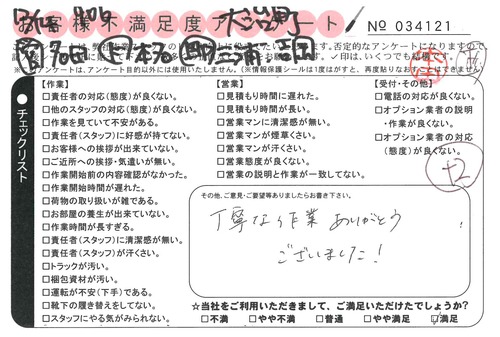 お客様不満足度アンケート
№ 034121
チェックリスト
【作業】
□責任者の対応(態度)が良くない。
□他のスタッフの対応(態度)が良くない。
□作業を見ていて不安がある。
□責任者(スタッフ)に好感が持てない。
□お客様への挨拶が出来ていない。
□ご近所への挨拶・気遣いが無い。
□作業開始前の内容確認がなかった。
□作業開始時間が遅れた。
□荷物の取り扱いが雑である。
□お部屋の養生が出来ていない。
□作業時間が長すぎる。
□責任者(スタッフ)に清潔感が無い。
□責任者(スタッフ)が汗くさい。
□トラックが汚い。
□梱包資材が汚い。
□運転が不安(下手)である。
□靴下の履き替えをしてない。
□スタッフにやる気がみられない。
【営業】
□見積もり時間に遅れた。
□見積もり時間が長い。
□営業マンに清潔感が無い。
□営業マンが煙草くさい。
□営業マンが汗くさい。
□営業態度が良くない。
□営業の説明と作業が一致してない。
【受付・その他】
□電話の対応が良くない。
□オプション業者の説明
・作業が良くない。
□オプション業者の対応
(態度)が良くない。
その他、ご意見・ご要望等ありましたらお書き下さい。
丁寧な作業ありがとう
ございました!
☆当社をご利用いただきまして、ご満足いただけたでしょうか?
□不満 □やや不満 □普通 □やや満足 □満足